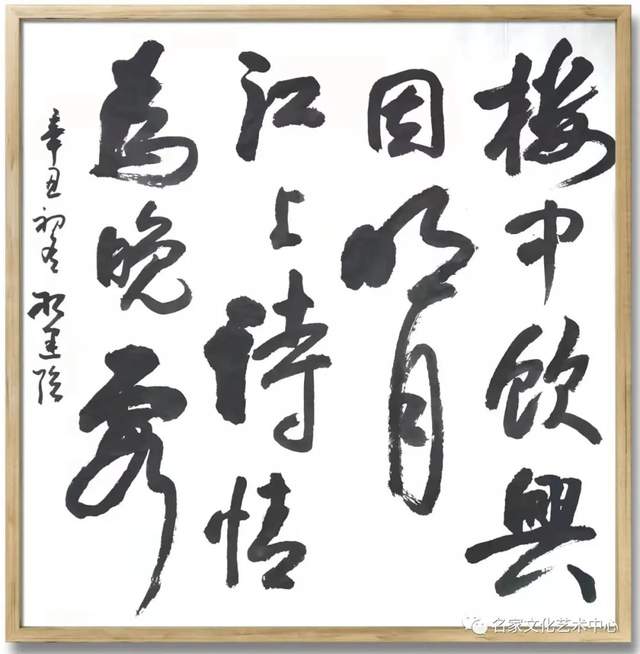 樓中飲興
因明月
江上詩情
為晚霞
辛丑初
名家文化艺术中心